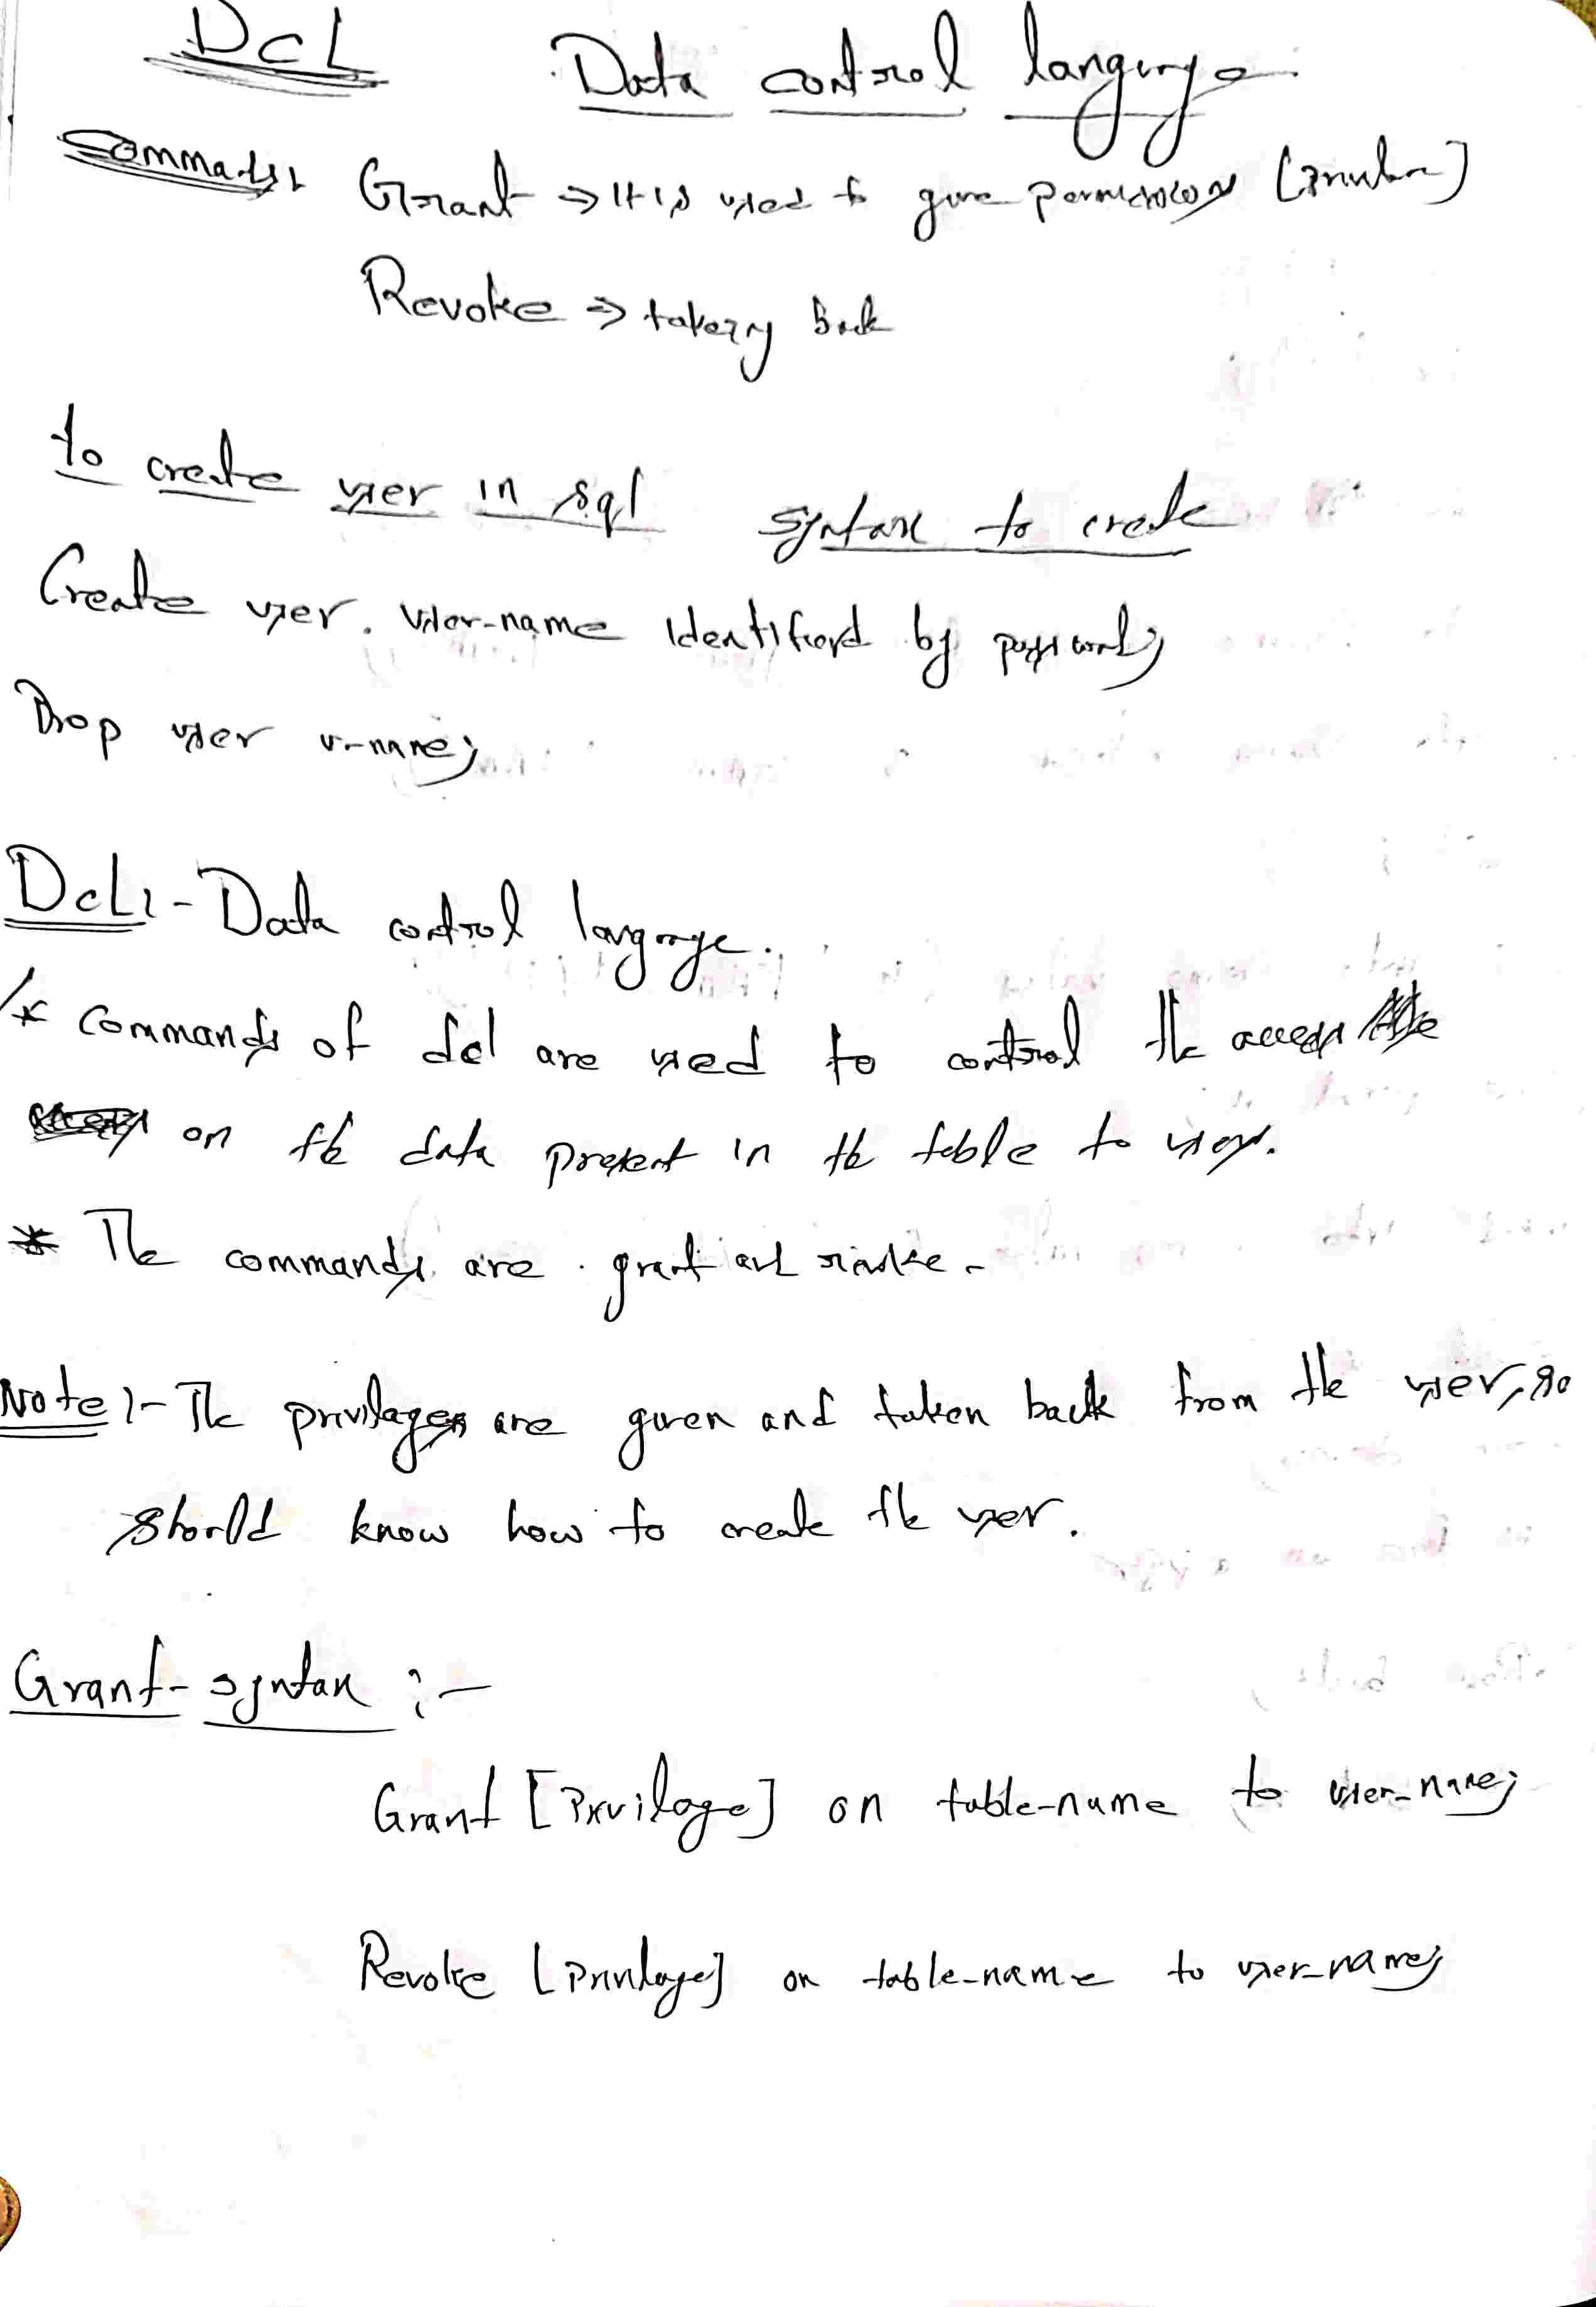 DCL Data control language
Commands: Grant ⇒ It is used to give permissions
Revoke ⇒ taking back
to create user in sql syntax to create
Create user. User-name Identified by password;
Drop user u-name;
DCL:- Data control language.
* Commands of dcl are used to control the access
on the data present in the table to user.
* The commands are grant and revoke.
Note:- The privilages are given and taken back from the user, so
should know how to create the user.
Grant-syntax :-
Grant [Privilage] on table-name to user-name;
Revoke [Privilage] on table-name to user-name;